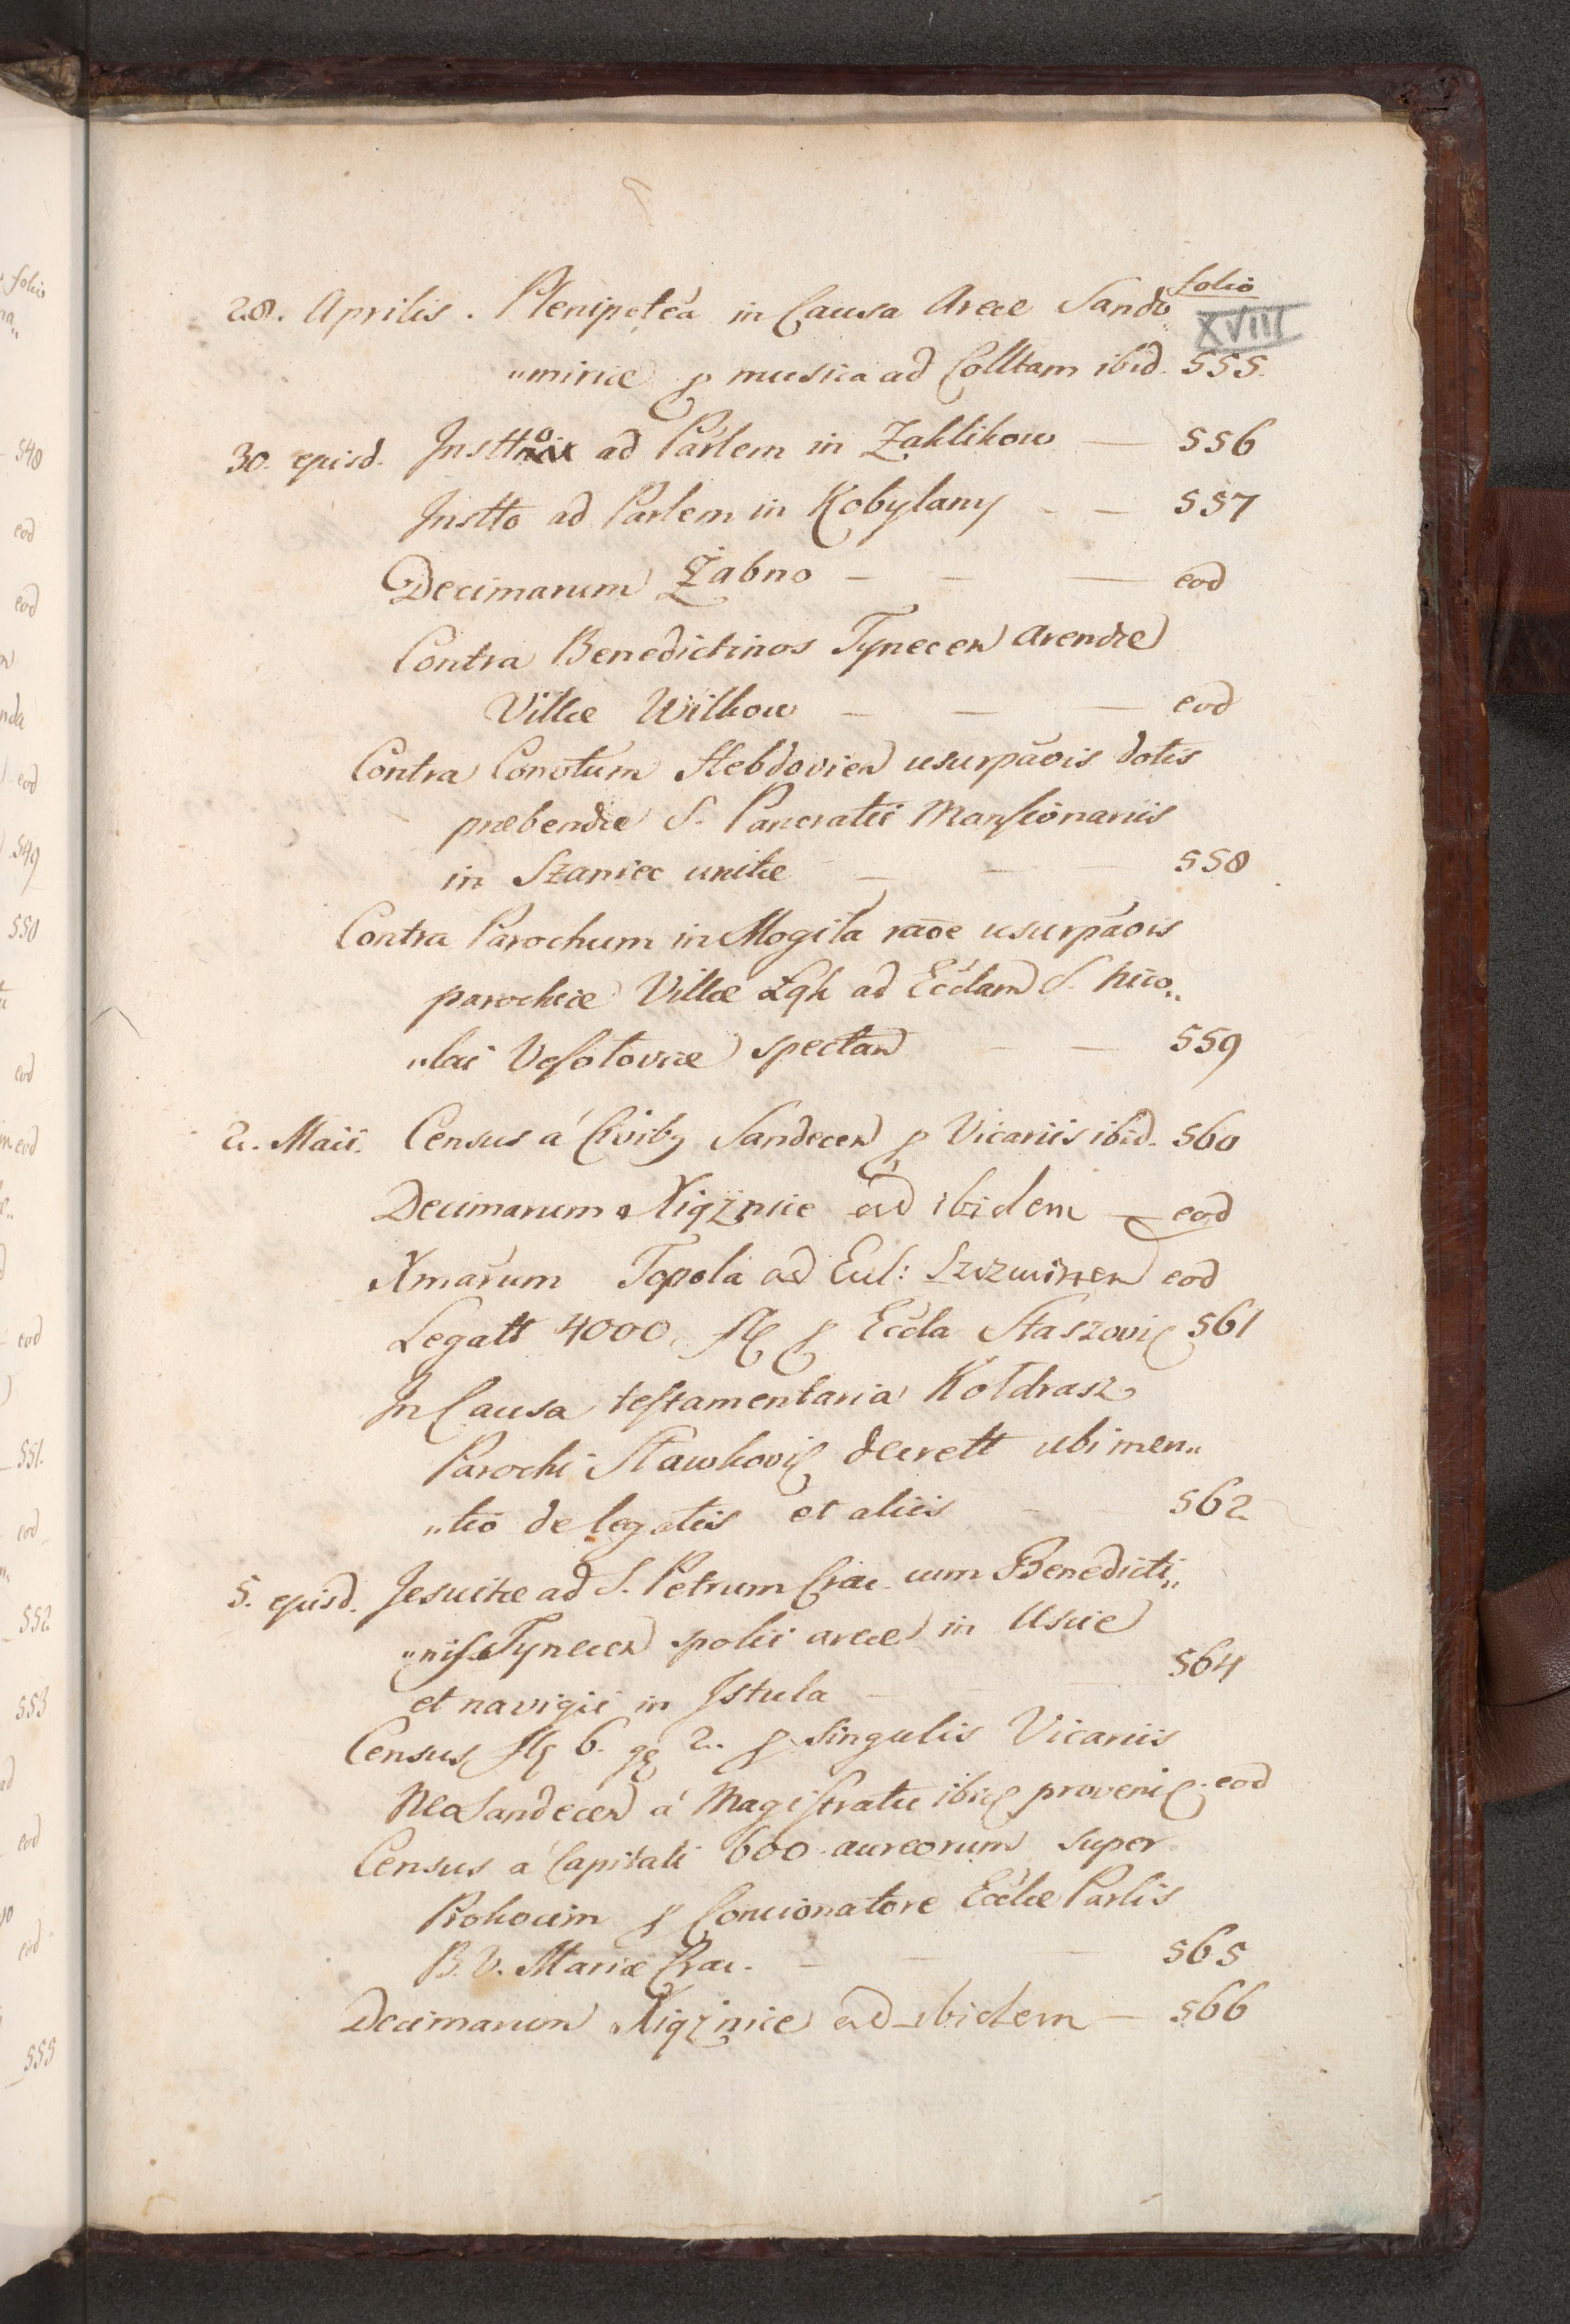 folio
XVIII
28. Aprilis. Plenipotēa in Causa Areæ Sando„
„miriæ ꝑ musica ad Colltam ibid. 555.
30. ejusd. Instto ad Parlem in Zaklikow — 556
Instto ad Parlem in Kobylany — — 557
Decimarum Żabno — — — eod
Contra Benedictinos Tynecen arendæ
Villæ Wilkow — — — eod
Contra Convtum Hebdovien usurpāois dotis
præbendæ S. Pancratii Mansionariis
in Szaniec unitæ — — — 558
Contra Parochum in Mogiła raōe usurpāois
parochiæ Villæ Łęk ad Ecclam S. Nico„
„lai Vesołoviæ spectan — — 559
2. Maii. Census á Civibꝫ Sandecen ꝑ Vicariis ibid. 560
Decimarum Xiąznice ad ibidem — eod
Xmarum Topola ad Eccl: eod
Legatt 4000 fl ꝑ Eccla Staszovi 561
In Causa testamentaria Kołdrasz
Parochi Sławkovi decrett ubi men„
„tio de legatis et aliis — — 562
5. ejusd. Jesuitæ ad S. Petrum Crac. cum Benedicti„
„nis Tynecen spolii areæ in Uscie
et navigii in Istula — — — 564
Census fl 6. gr 2. ꝑ singulis Vicariis
NeoSandecen á Magistratu ibi proveni. eod
Census á Capitali 600 aureorum super
Prokocim ꝑ Concionatore Ecclæ Parlis
B. V. Mariæ Crac. — — — 565
Decimarum Xiążnice ad ibidem — 566